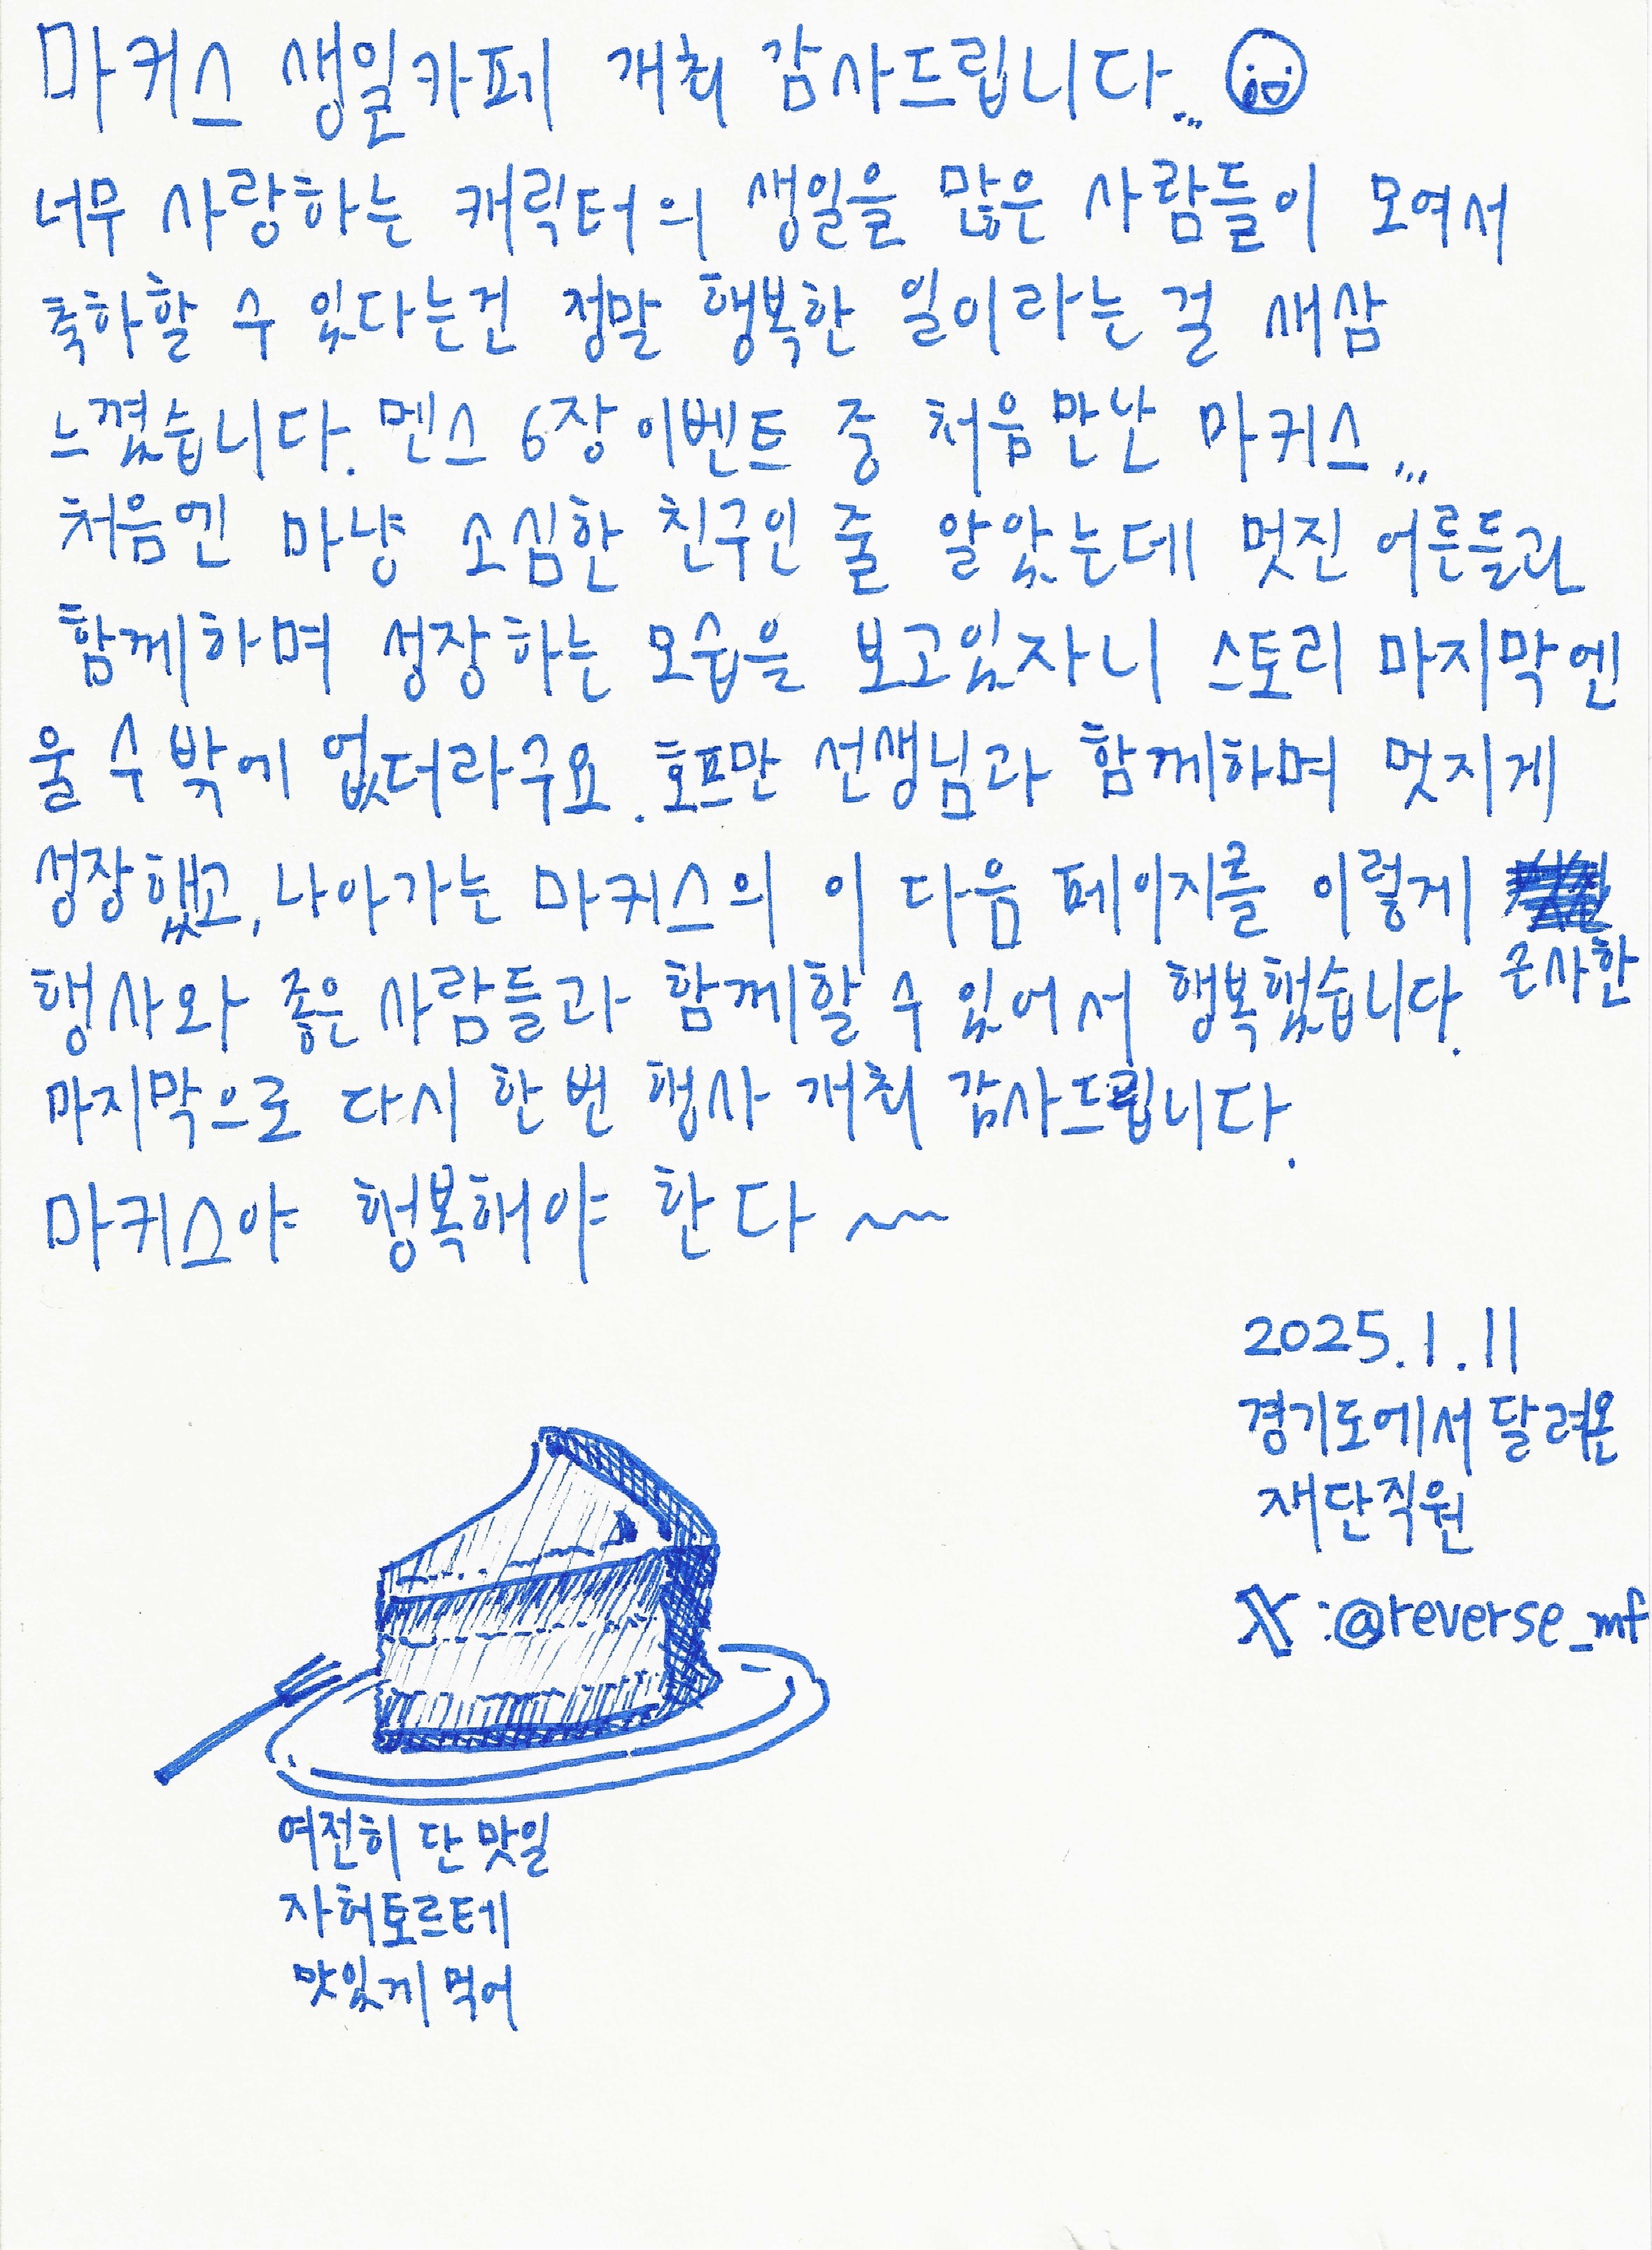 마커스 생일카페 개최 감사드립니다...
너무 사랑하는 캐릭터의 생일을 많은 사람들이 모여서
축하할 수 있다는건 정말 행복한 일이라는 걸 새삼
느꼈습니다. 멘스 6장 이벤트 중 처음 만난 마커스...
처음엔 마냥 소심한 친구인 줄 알았는데 멋진 어른들과
함께하며 성장하는 모습을 보고있자니 스토리 마지막엔
울 수 밖에 없더라구요. 호프만 선생님과 함께하며 멋지게
성장했고, 나아가는 마커스의 이 다음 페이지를 이렇게
근사한
행사와 좋은 사람들과 함께할 수 있어서 행복했습니다.
마지막으로 다시 한 번 행사 개최 감사드립니다.
마커스야 행복해야 한다 ~~
2025.1.11
경기도에서 달려온
재단직원
X :@reverse_mf
여전히 단 맛일
자허토르테
맛있게 먹어